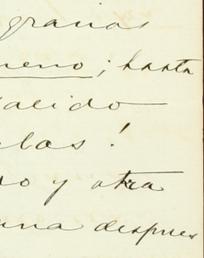 gracias
meno; hasta
alido
las!
o y otra
una despues